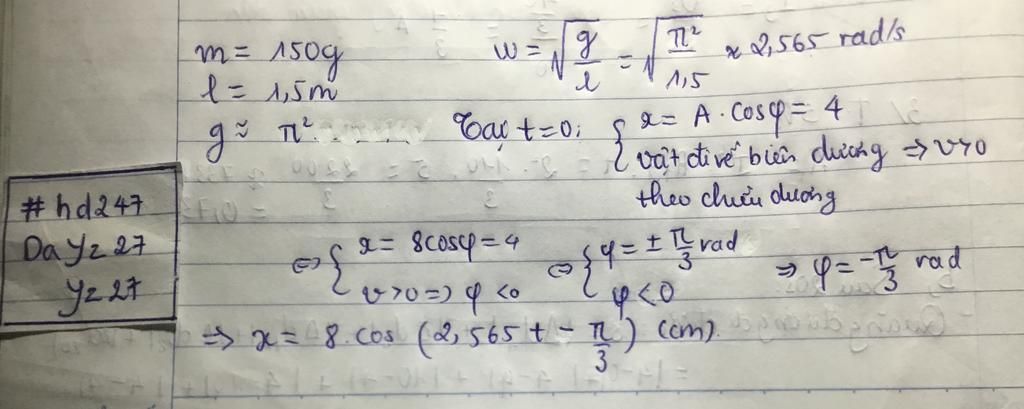 m = 150g
ω = √(g/l) = √(π²/1,5) ≈ 2,565 rad/s
l = 1,5m
g ≈ π²
Tại t=0: { x = A.cosφ = 4
vật đi về biên dương => v>0
theo chiều dương
#hd247
Da Yz 27
Yz 27
<=> { x = 8cosφ = 4
v>0 => φ <0
<=> { φ = ± π/3 rad
φ<0
=> φ = -π/3 rad
=> x = 8.cos (2,565 t - π/3) (cm).